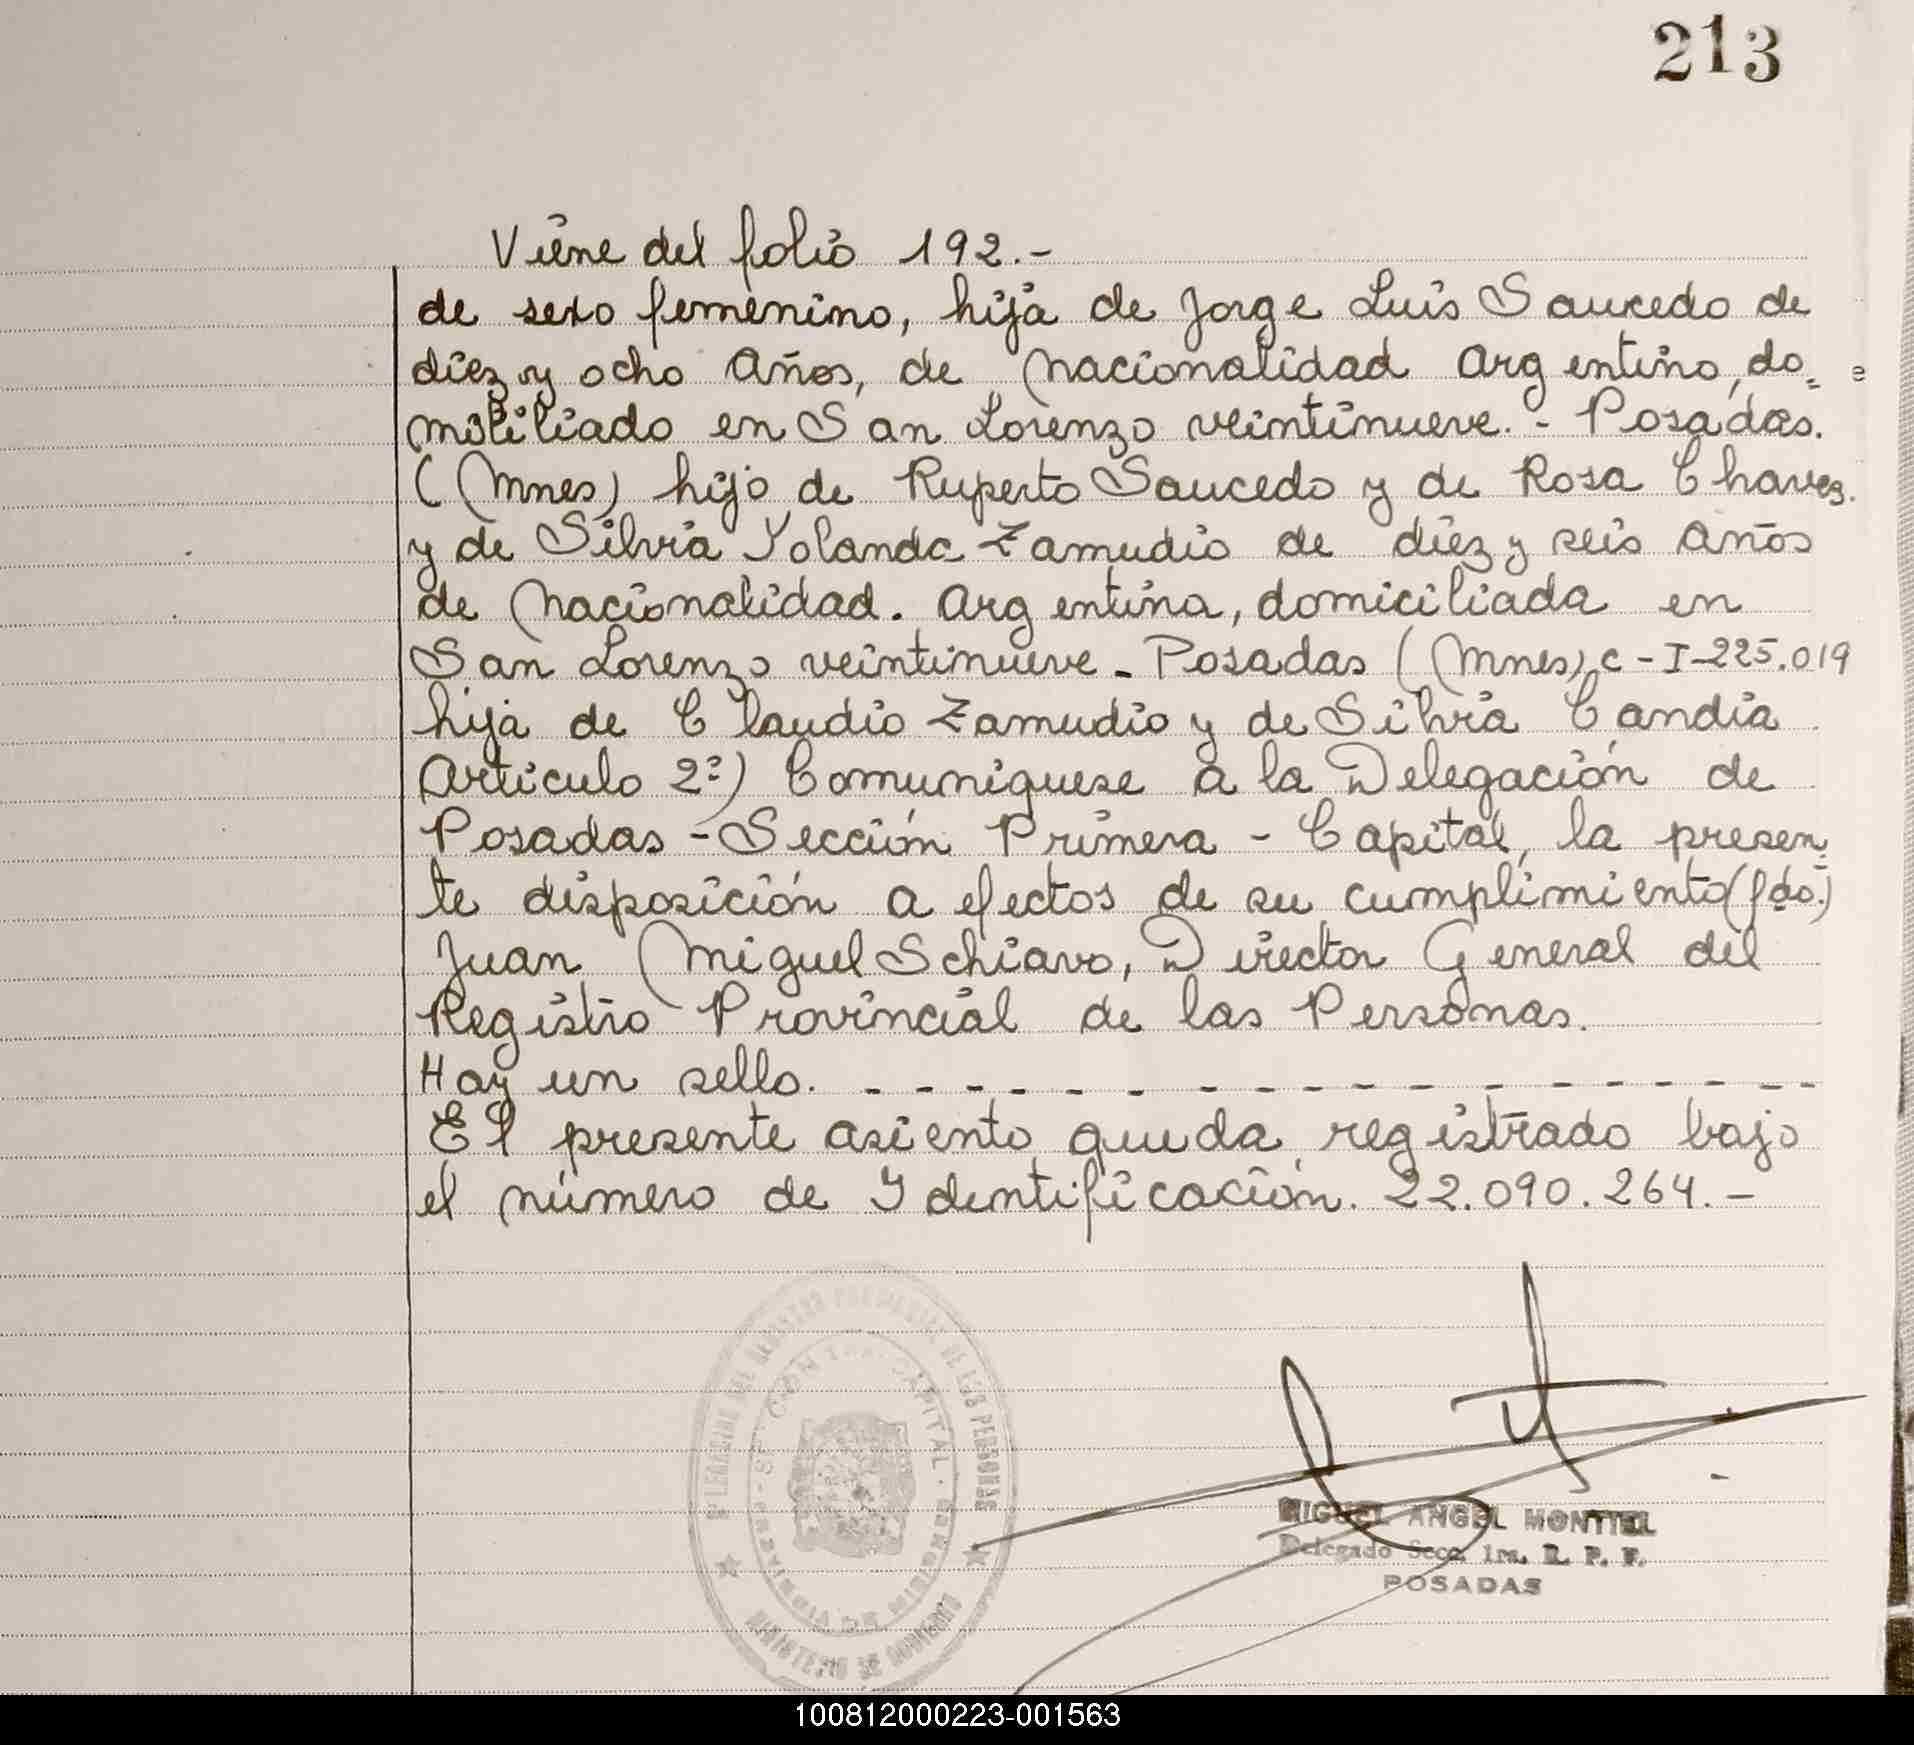 213
Viene del folio 192.-
de sexo femenino, hija de Jorge Luis Saucedo de
diez y ocho años, de nacionalidad Argentino, do=
miciliado en San Lorenzo veintinueve.- Posadas.
(Mnes) hijo de Ruperto Saucedo y de Rosa Chavez.
y de Silvia Yolanda Zamudio de diez y seis años
de nacionalidad. Argentina, domiciliada en
San Lorenzo veintinueve - Posadas (Mnes) C-I-225.019
hija de Claudio Zamudio y de Silvia Candia
Artículo 2º) Comuniquese a la Delegación de
Posadas - Sección Primera - Capital, la presen=
te disposición a efectos de su cumplimiento (fdo.)
Juan Miguel Schiavo, Director General del
Registro Provincial de las Personas.
Hay un sello. - - - - - - - - - - - - - - - - - -
El presente asiento queda registrado bajo
el número de Identificación. 22.090.264.-
DELEGACION DEL REGISTRO PROVINCIAL DE LAS PERSONAS
MINISTERIO DE GOBIERNO
MIGUEL ANGEL MONTIEL
Delegado Secc. 1ra. R. P. P.
POSADAS
100812000223-001563